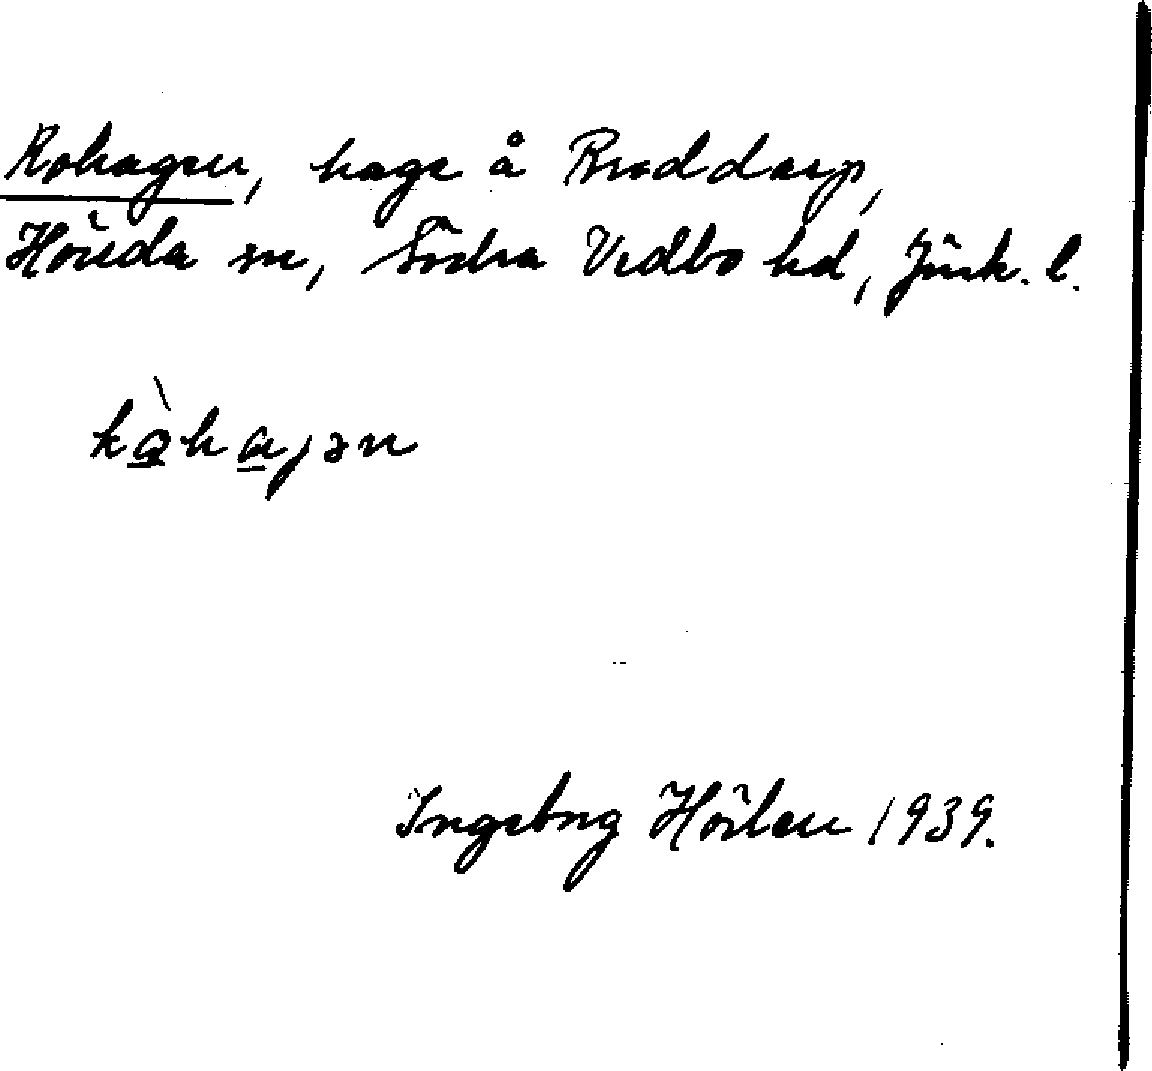 Kohagen, hage å Broddarp,
Höreda sn, Södra Vedbo hd, Jönk. l.
kòhaɡən
Ingeborg Hörlen 1939.